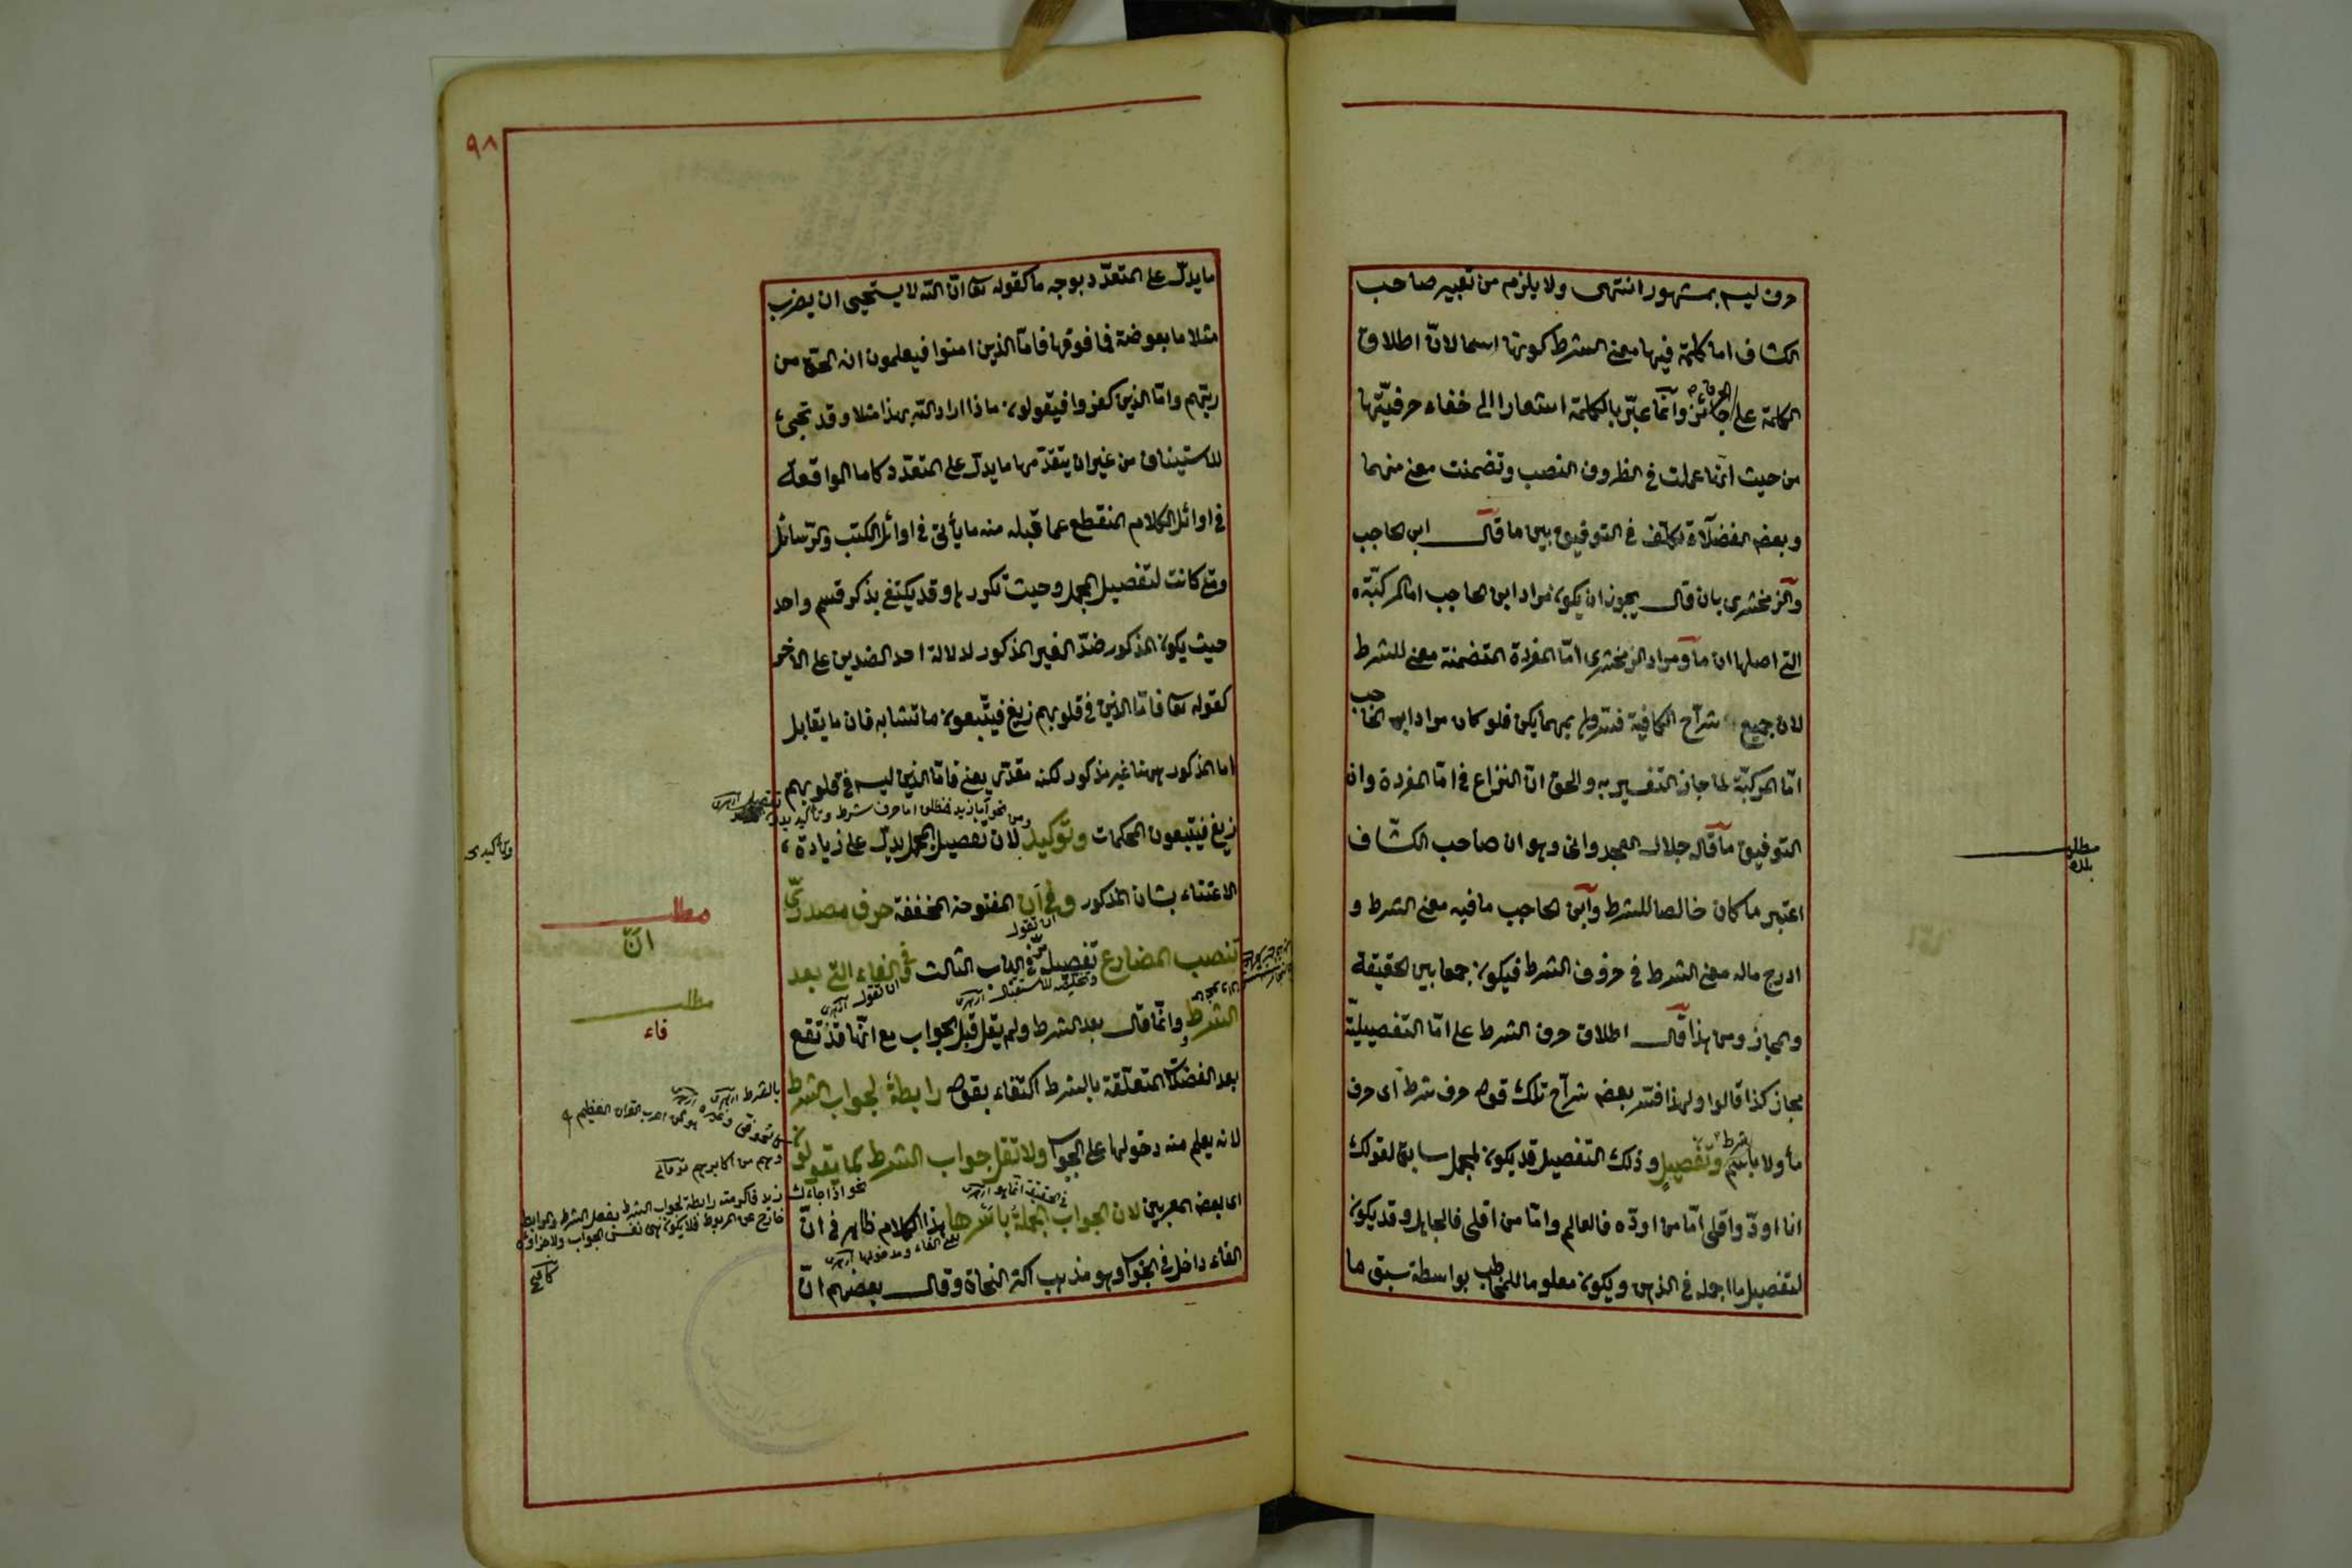 حرف ليس بمشهور انتهى ولا يلزم من تعبير صاحب
الكشاف اما كلمة فيها معنى الشرط كونها اسما لان اطلاق
الكلمة على الحرف جائز وانّما عبّر بالكلمة اشعارا الى خفاء حرفيّتها
من حيث انّها عملت في الظروف النصب وتضمنت معنى مهما
وبعض الفضلاء تكلّف في التوفيق بين ما قال ابن الحاجب
والزمخشرى بان قال يجوز ان يكون مراد ابن الحاجب اما المركبّة
التى اصلها ان ما ومراد الزمخشرى امّا المفردة المتضمنة معنى للشرط
لان جميع شرّاح الكافية فسّروا بمهما يكن فلو كان مراد ابن الحاجب
امّا المركبّة لما جاز التفسير به والحق انّ النزاع في امّا المفردة وان
التوفيق ما قاله جلال الغجدوانى وهو ان صاحب الكشّاف
اعتبر ما كان خالصا للشرط وابن الحاجب ما فيه معنى الشرط و
ادرج ماله معنى الشرط في حروف الشرط فيكون جمعا بين الحقيقة
والمجاز ومن هذا قال اطلاق حرف الشرط على امّا التفصيليّة
مجاز كذا قالوا ولهذا فسّر بعض شرّاح تلك قوله حرف شرط اى حرف
مأولا باسم شرط وتفصيلٍ وذلك التفصيل قد يكون لمجمل سابق لقولك
انا اودّ واقلى امّا من اودّه فالعالم وامّا من اقلى فالجاهل وقد يكون
لتفصيل ما اجمله في الذهن ويكون معلوما للمخاطب بواسطة سبق ما
مطلب
٩٨
ما يدلّ على المتعدّد بوجه ما كقوله تعا انّ الله لا يستحيى ان يضرب
مثلا ما بعوضة فما فوقها فامّا الذين امنوا فيعلمون انه الحق من
ربّهم وامّا الذين كفروا فيقولون ماذا اراد الله بهذا مثلا وقد تجئ
للاستيناف من غير ان يتقدّمها ما يدلّ على المتعدّد كاما الواقعة
في اوائل الكلام المنقطع عما قبله منه ما يأتى في اوائل الكتب والرّسائل
ومتى كانت لتفصيل المجمل وحيث تكررها وقد يكتفى بذكر قسم واحد
حيث يكون المذكور ضدّ الغير المذكور لدلالة احد الضدين على الآخر
كقوله تعا فامّا الذين في قلوبهم زيغ فيتّبعون ما تشابه فان ما يقابل
اما المذكور ههنا غير مذكور لكنه مقدّر يعنى فامّا الذين ليس في قلوبهم
زيغ فيتبعون المحكمات وتوكيد لان تفصيل المجمل يدلّ على زيادة
الاعتناء بشان المذكور وفى اَن المفتوحة المخففة حرف مصدرىّ
تنصب المضارع تفصيل في الباب الثالث في الفاء التى بعد
الشرط وانّما قال بعد الشرط ولم يقل قبل الجواب مع انّها قد تقع
بعد الفضلات المتعلّقة بالشرط اكتفاء بقوله رابطة لجواب الشرط
لانه يعلم منه دخولها على الجواب ولا تقل جواب الشرط كما يقولون
اى بعض المعربين لان الجواب الجملة باسرها هذا الكلام ظاهر في انّ
الفاء داخل في الجواب وهو مذهب اكثر النحاة وقال بعضهم انّ
مطلب
انّ
مطلب
فاء
ان تقول
ان تقول
في الحقيقة انّما هو
يعنى الفاء ومدخولها
نحو اذا جاءك زيد فاكرمته رابطة لجواب الشرط